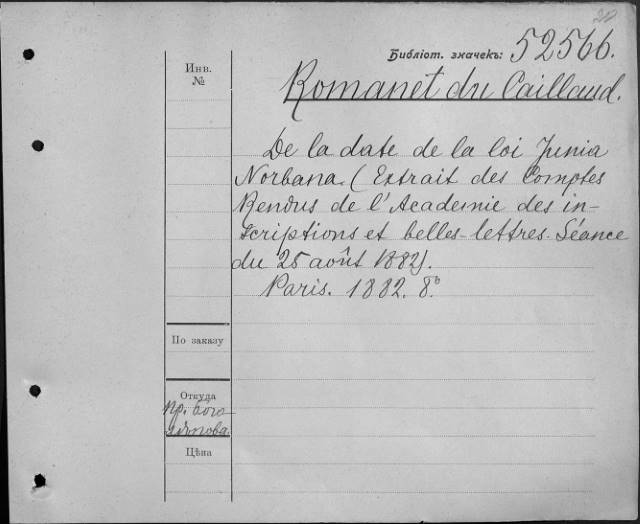 20
Библіот. значекъ: 52566.
Инв.
№
Romanet du Caillaud.
De la date de la loi Junia
Norbana. (Extrait des Comptes
Rendus de l'Academie des in-
scriptions et belles-lettres. Séance
du 25 août 1882).
Paris. 1882. 8º
По заказу
Откуда
Пр. Бого
Цѣна